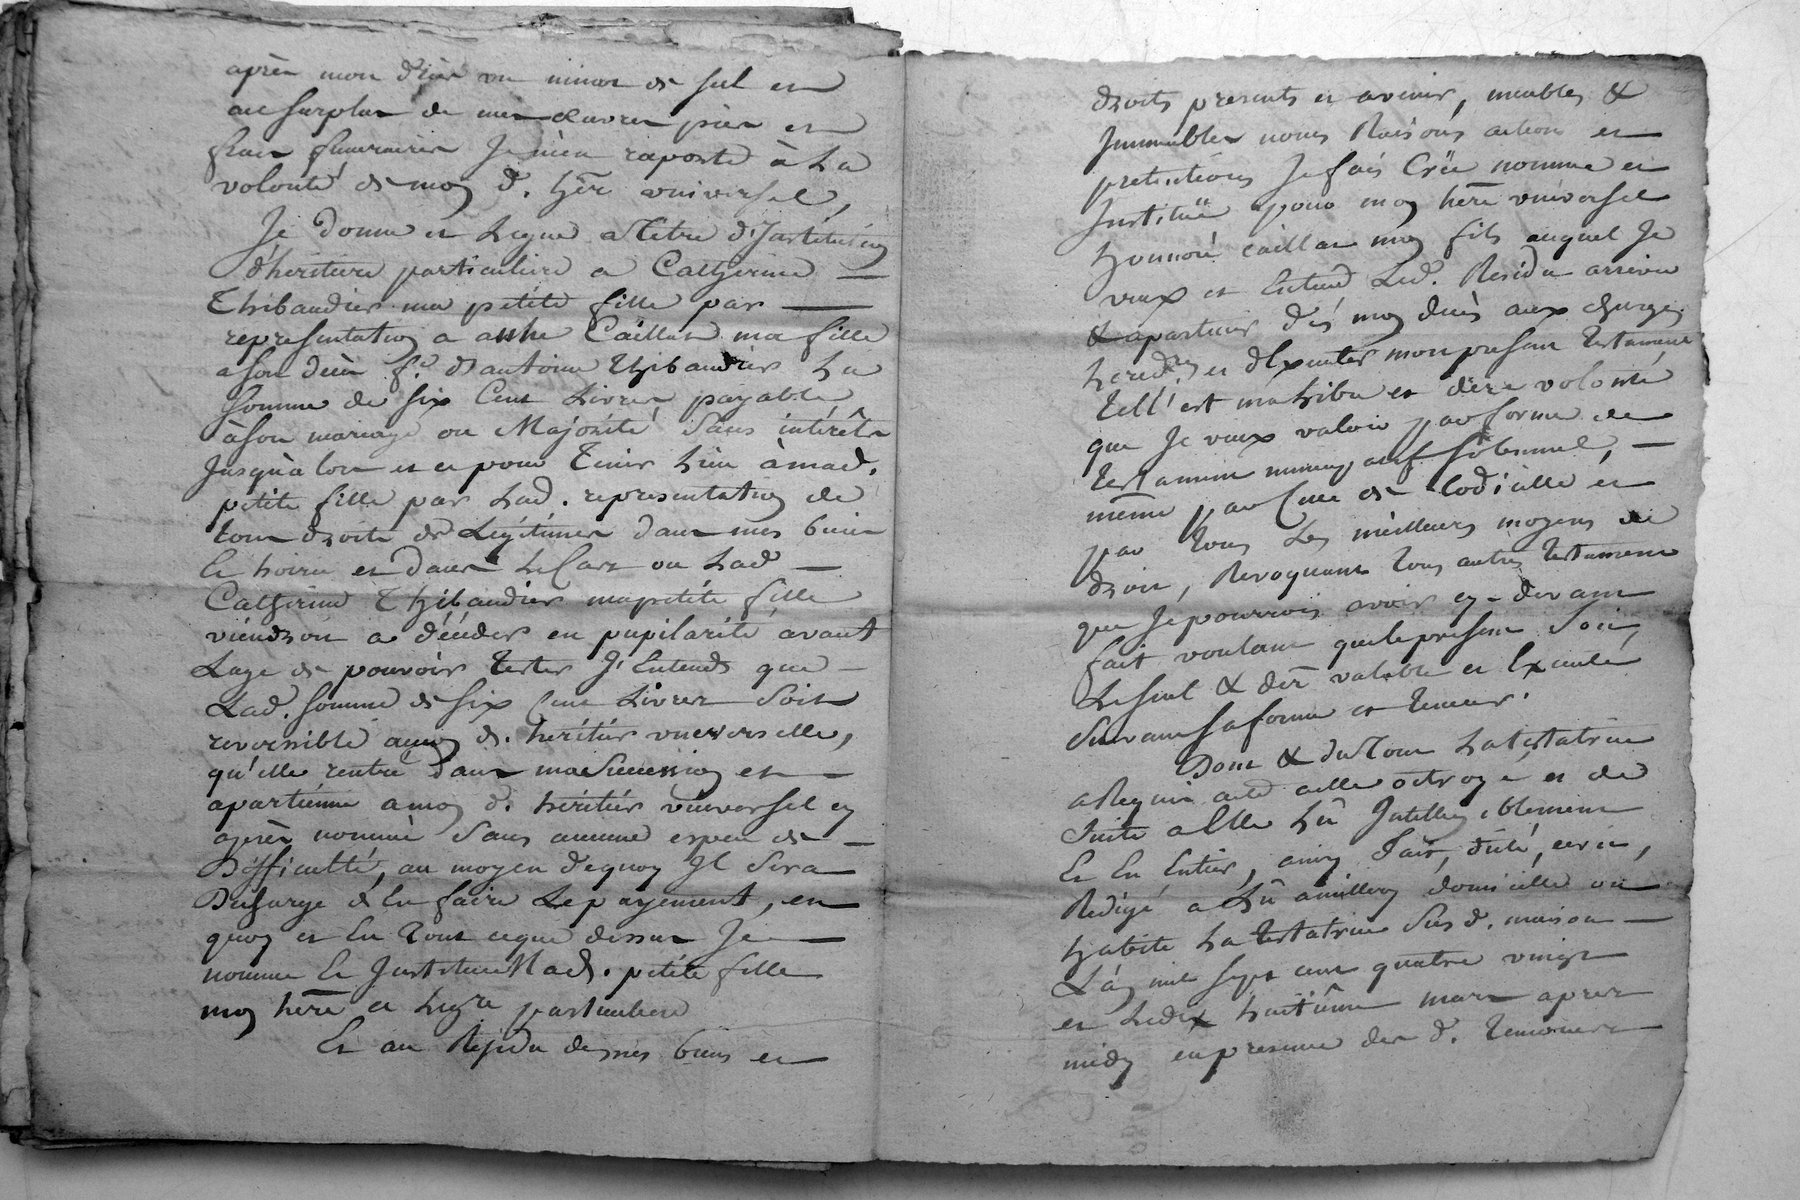 après mon décès un minot de sel et
au surplus de mes œuvres pies et
frais funeraires Je m'en raporte à La
volonté de moy d. hêr universel,
Je donne et Legue a Titre d'Institution
d'héritiere particuliere a Catherine
Thibaudier ma petite fille par
representation a anne Caillat ma fille
a son décès f.e d'antoine Thibaudier La
somme de six Cent Livres payable
à son mariage ou Majorité sans intérêts
Jusqu'alors et ce pour Tenir Lieu à mad.
petite fille par Lad. representation de
tous droits de Legitimes dans mes biens
et hoirie et dans Le Cas ou Lad
Catherine Thibaudier ma petite fille
viendroit a décéder en pupilarité avant
Lage de pouvoir tester J'Entends que
Lad. somme de six Cent Livres soit
reversible a moy d. héritier universelle,
qu'elle rentre dans ma succession et
apartienne a moy d. héritier universel cy
après nommé sans aucune espece de
Difficulté, au moyen dequoy Il sera
Decharge d'En faire Le payement, en
quoy et En Tout ceque dessus Je
nomme Et Institue Mad. petite fille
moy hêre et Leg.re particuliere
Et au Résidu de mes biens et
droits presents et avenir, meubles &
Immeubles noms Raisons actions et
pretentions Je fais Crée nomme et
Instituë pour moy hêre universel
Honnoré caillat moy fils auquel Je
veux et Entend Led. Residu arriver
& apartenir dés moy décès aux charges
hered.res et d'Executer mon present Testament
Tell'est ma Libre et dere volonté
que Je veux valoir par forme de
Testament nuncupatif solemnel,
même par Celle de Codicille et
par tous Les meilleurs moyens de
droit, Revoquant tous autres testament
que Je pourrois avoir cy-devant
fait voulant que le present soit
Le seul & der valable et Executé
Suivant sa forme et teneur.
Dont & du Tout La testatrice
a Requis acte a elle octroyé et de
suite a Elle Lû Intelligiblement
Et En Entier, ainsy fait, dicté, ecrit,
Redigé a Lû domicille ou
habite La testatrice sus d. maison
L'an mil sept cent quatre vingt
et Le dix huitiême mars apres
midy en presence des d. temoins